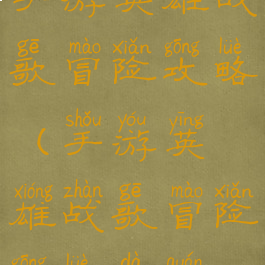 手游英雄战
gē mào xiǎn gōng lüè
歌冒险攻略
shǒu yóu yīng
(手游英
xióng zhàn gē mào xiǎn
雄战歌冒险
gōng lüè dà quán